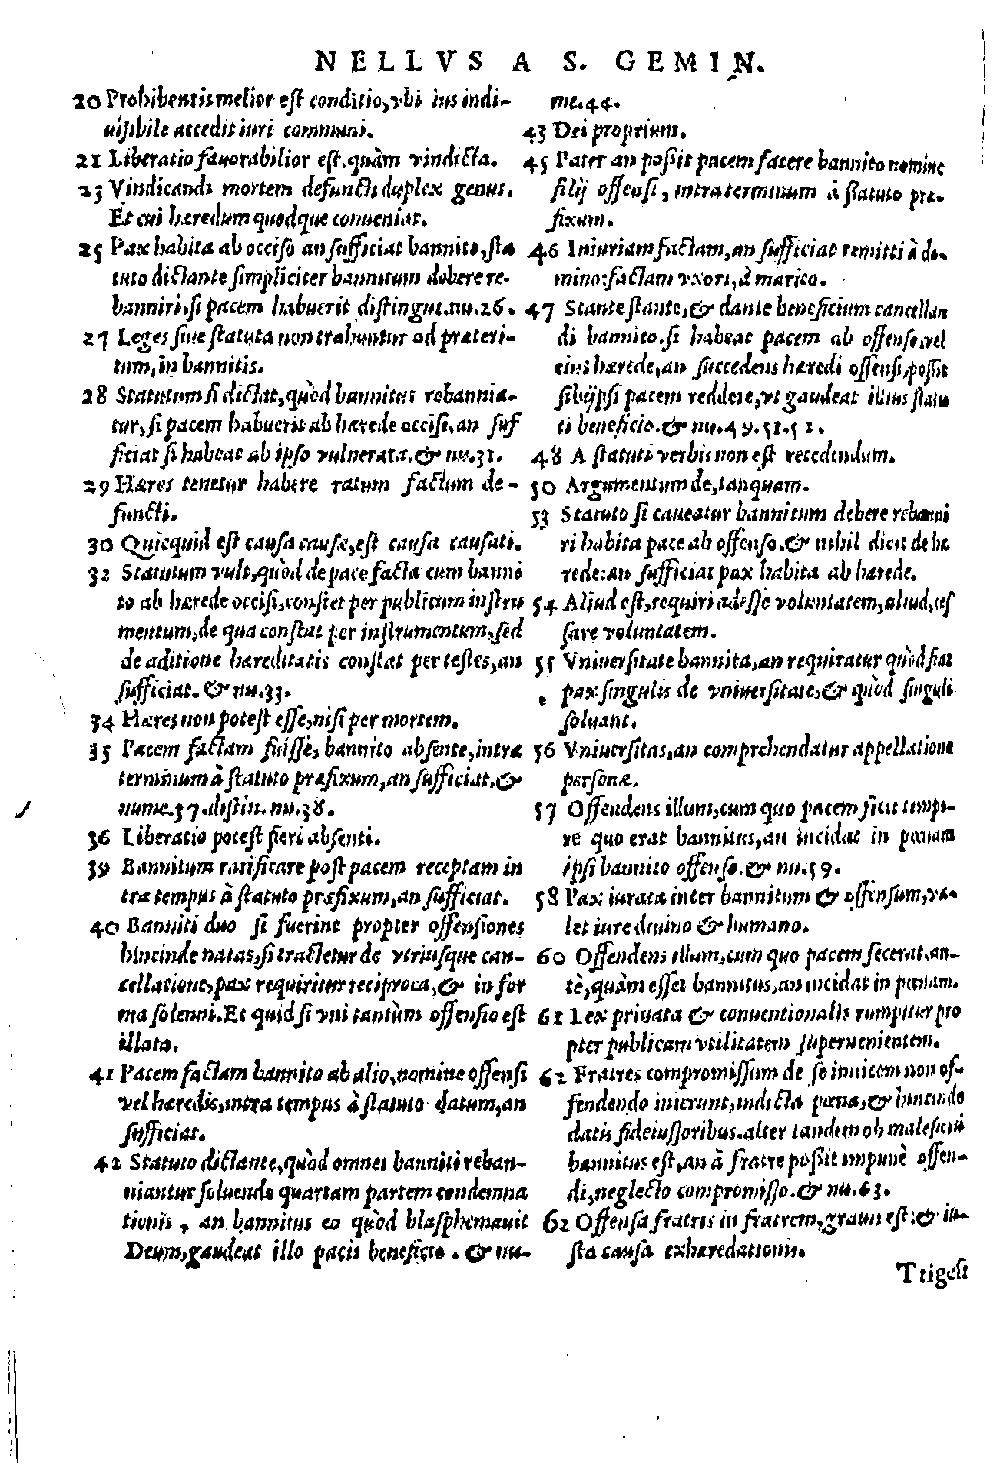 NELLVS A S. GEMIN.
20 Prohibentis melior est conditio, vbi ius indi-
uisibile accedit iuri communi.
21 Liberatio fauorabilior est, quàm vindicta.
23 Vindicandi mortem defuncti duplex genus.
Et cui hæredum quodque conueniat.
25 Pax habita ab occiso an sufficiat bannito, sta
tuto dictante simpliciter bannitum debere re-
banniri, si pacem habuerit distingut. nu. 26.
27 Leges siue statuta non trahuntur ad præteri-
tum, in bannitis.
28 Statutum si dictat, quòd bannitus rebannia-
tur, si pacem habuerit ab hærede occisi, an suf
ficiat si habeat ab ipso vulnerato. & nu. 31.
29 Hæres tenetur habere ratum factum de-
functi.
30 Quicquid est causa causæ, est causa causati.
32 Statutum vult, quòd de pace facta cum banni
to ab hærede occisi, constet per publicum instru
mentum, de qua constat per instrumentum, sed
de aditione hæreditatis constat per testes, an
sufficiat. & nu. 33.
34 Hæres non potest esse, nisi per mortem.
35 Pacem factam fuisse, bannito absente, intra
terminum à statuto præfixum, an sufficiat, &
nume. 37. distin. nu. 38.
36 Liberatio potest fieri absenti.
39 Bannitum ratificare post pacem receptam in
tra tempus à statuto præfixum, an sufficiat.
40 Banniti duo si fuerint propter offensiones
hincinde natas, si tractetur de vtriusque can-
cellatione, pax requiritur reciproca, & in for
ma solenni. Et quid si vni tantùm offensio est
illata.
41 Pacem factam bannito ab alio, nomine offensi
vel hæredis, intra tempus à statuto datum, an
sufficiat.
42 Statuto dictante, quòd omnes banniti reban-
niantur soluendo quartam partem condemna
tionis, an bannitus eo quòd blasphemauit
Deum, gaudeat illo pacis beneficio. & nu-
me. 44.
43 Dei proprium.
45 Pater an possit pacem facere bannito nomine
filij offensi, intra terminum à statuto præ-
fixum.
46 Iniuriam factam, an sufficiat remitti à do-
mino: factam vxori, à marito.
47 Stante statuto, & dante beneficium cancellan
di bannito, si habeat pacem ab offenso, vel
eius hærede, an succedens hæredi offensi, possit
sibijpsi pacem reddere, vt gaudeat illius statu
ti beneficio. & nu. 49. 51. 52.
48 A statuti verbis non est recedendum.
50 Argumentum de, tanquam.
53 Statuto si caueatur bannitum debere rebanni
ri habita pace ab offenso, & nihil dicit de hæ
rede: an sufficiat pax habita ab hærede.
54 Aliud est, requiri adesse voluntatem, aliud, ces
sare voluntatem.
55 Vniuersitate bannita, an requiratur quòd fiat
pax singulis de vniuersitate, & quòd singuli
soluant.
56 Vniuersitas, an comprehendatur appellatione
personæ.
57 Offendens illum, cum quo pacem fecit tempo-
re quo erat bannitus, an incidat in pœnam
ipsi bannito offenso. & nu. 59.
58 Pax iurata inter bannitum & offensum, va-
let iure diuino & humano.
60 Offendens illum, cum quo pacem fecerat, an-
tè, quàm esset bannitus, an incidat in pœnam.
61 Lex priuata & conuentionalis rumpitur pro
pter publicam vtilitatem superuenientem.
62 Fratres compromissum de se inuicem non of-
fendendo inierunt, indicta pœna, & hincinde
datis fideiussoribus. alter tandem ob maleficiũ
bannitus est, an à fratre possit impunè offen-
di, neglecto compromisso. & nu. 63.
62 Offensa fratris in fratrem, grauis est: & iu-
sta causa exhæredationis.
Ttigest